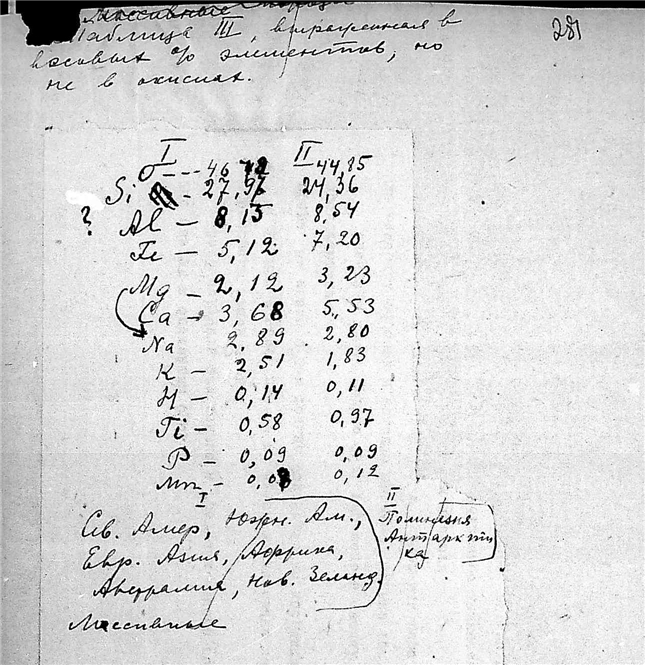 Массивные породы
Таблица III, выраженная в
весовых % элементов, но
не в окислах.
281
I II
O --- 46 78 44,85
Si – 27,96 24,36
? Al – 8,15 8,54
Fe – 5,12 7,20
Mg – 2,12 3,23
Ca – 3,68 5,53
Na 2,89 2,80
K – 2,51 1,83
H – 0,14 0,11
Ti – 0,58 0,97
P – 0,09 0,09
Mn – 0,08 0,12
I II
Сев. Амер, Южн. Ам., Полинезия
Евр. Азия, Африка, Антарктика
Австралия, Нов. Зеланд.
Массивные